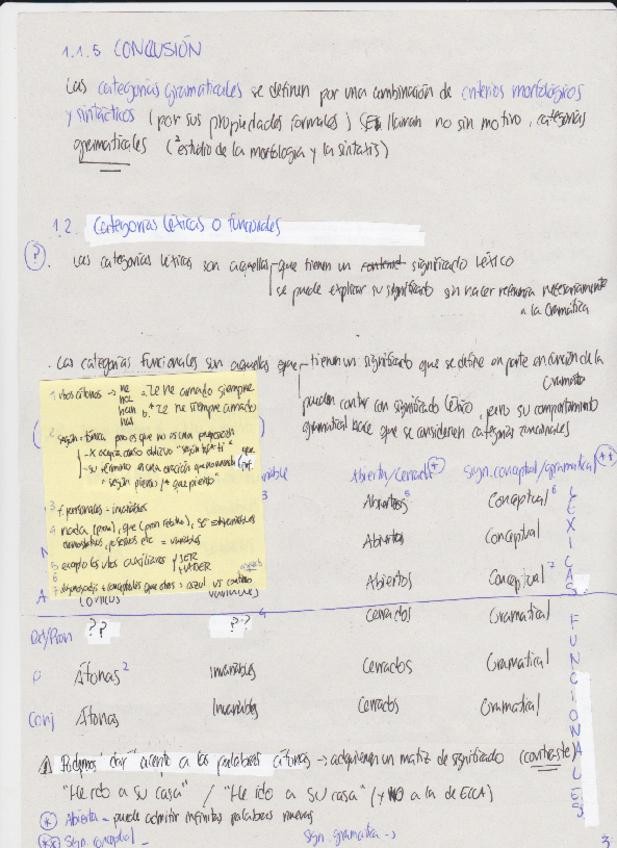 1.1.5 CONCLUSIÓN
Las categorías gramaticales se definen por una combinación de criterios morfológicos
y sintácticos (por sus propiedades formales) (se llaman no sin motivo, categorías
gramaticales (estudio de la morfología y la sintaxis)
1.2. Categorías léxicas o funcionales
? . Las categorías léxicas son aquellas que tienen un significado léxico
se puede explicar su significado sin hacer referencia necesariamente
a la Gramática
. Las categorías funcionales son aquellas que tienen un significado que se define en parte en función de la
Gramática
pueden contar con significado léxico, pero su comportamiento
gramatical hace que se consideren categorías funcionales
1 vbos átonos → he
ha
han
has
a. Te he amado siempre
b. * Te he siempre amado
2 según = tónica pero es que no es una preposición
- X acepta caso oblicuo "según *ti"
- su término es una oración
"según pienso / * que pienso"
3 f. personales - invariables
4 nada (pron), que (pron relativo), se
demostrativos, posesivos etc = variables
5 ejemplos vbos auxiliares SER
HABER
6
7 conceptuales que otros = azul vs
Abierta/Cerrada *
Sign. conceptual/gramatical **
Abiertos 5
Conceptual 6
Abiertos
Conceptual
Abiertos
Conceptual 7
LÉXICAS
A Tónicos Variables
Det/Pron ?? ?? 4 Cerrados Gramatical
P Átonas 2 Invariables Cerrados Gramatical
Conj Átonas Invariables Cerrados Gramatical
FUNCIONALES
⚠ Podemos "dar" acento a las palabras átonas → adquieren un matiz de significado (contraste)
"He ido a su casa" / "He ido a SU casa" (y NO a la de ELLA)
* Abierta - puede admitir infinitas palabras nuevas
** Sign. conceptual - Sign. gramatica →
3